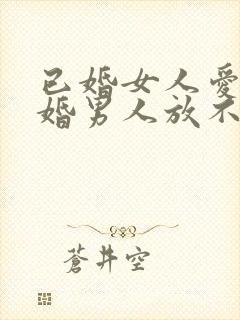 已婚女人爱
婚男人放不
蒼井空